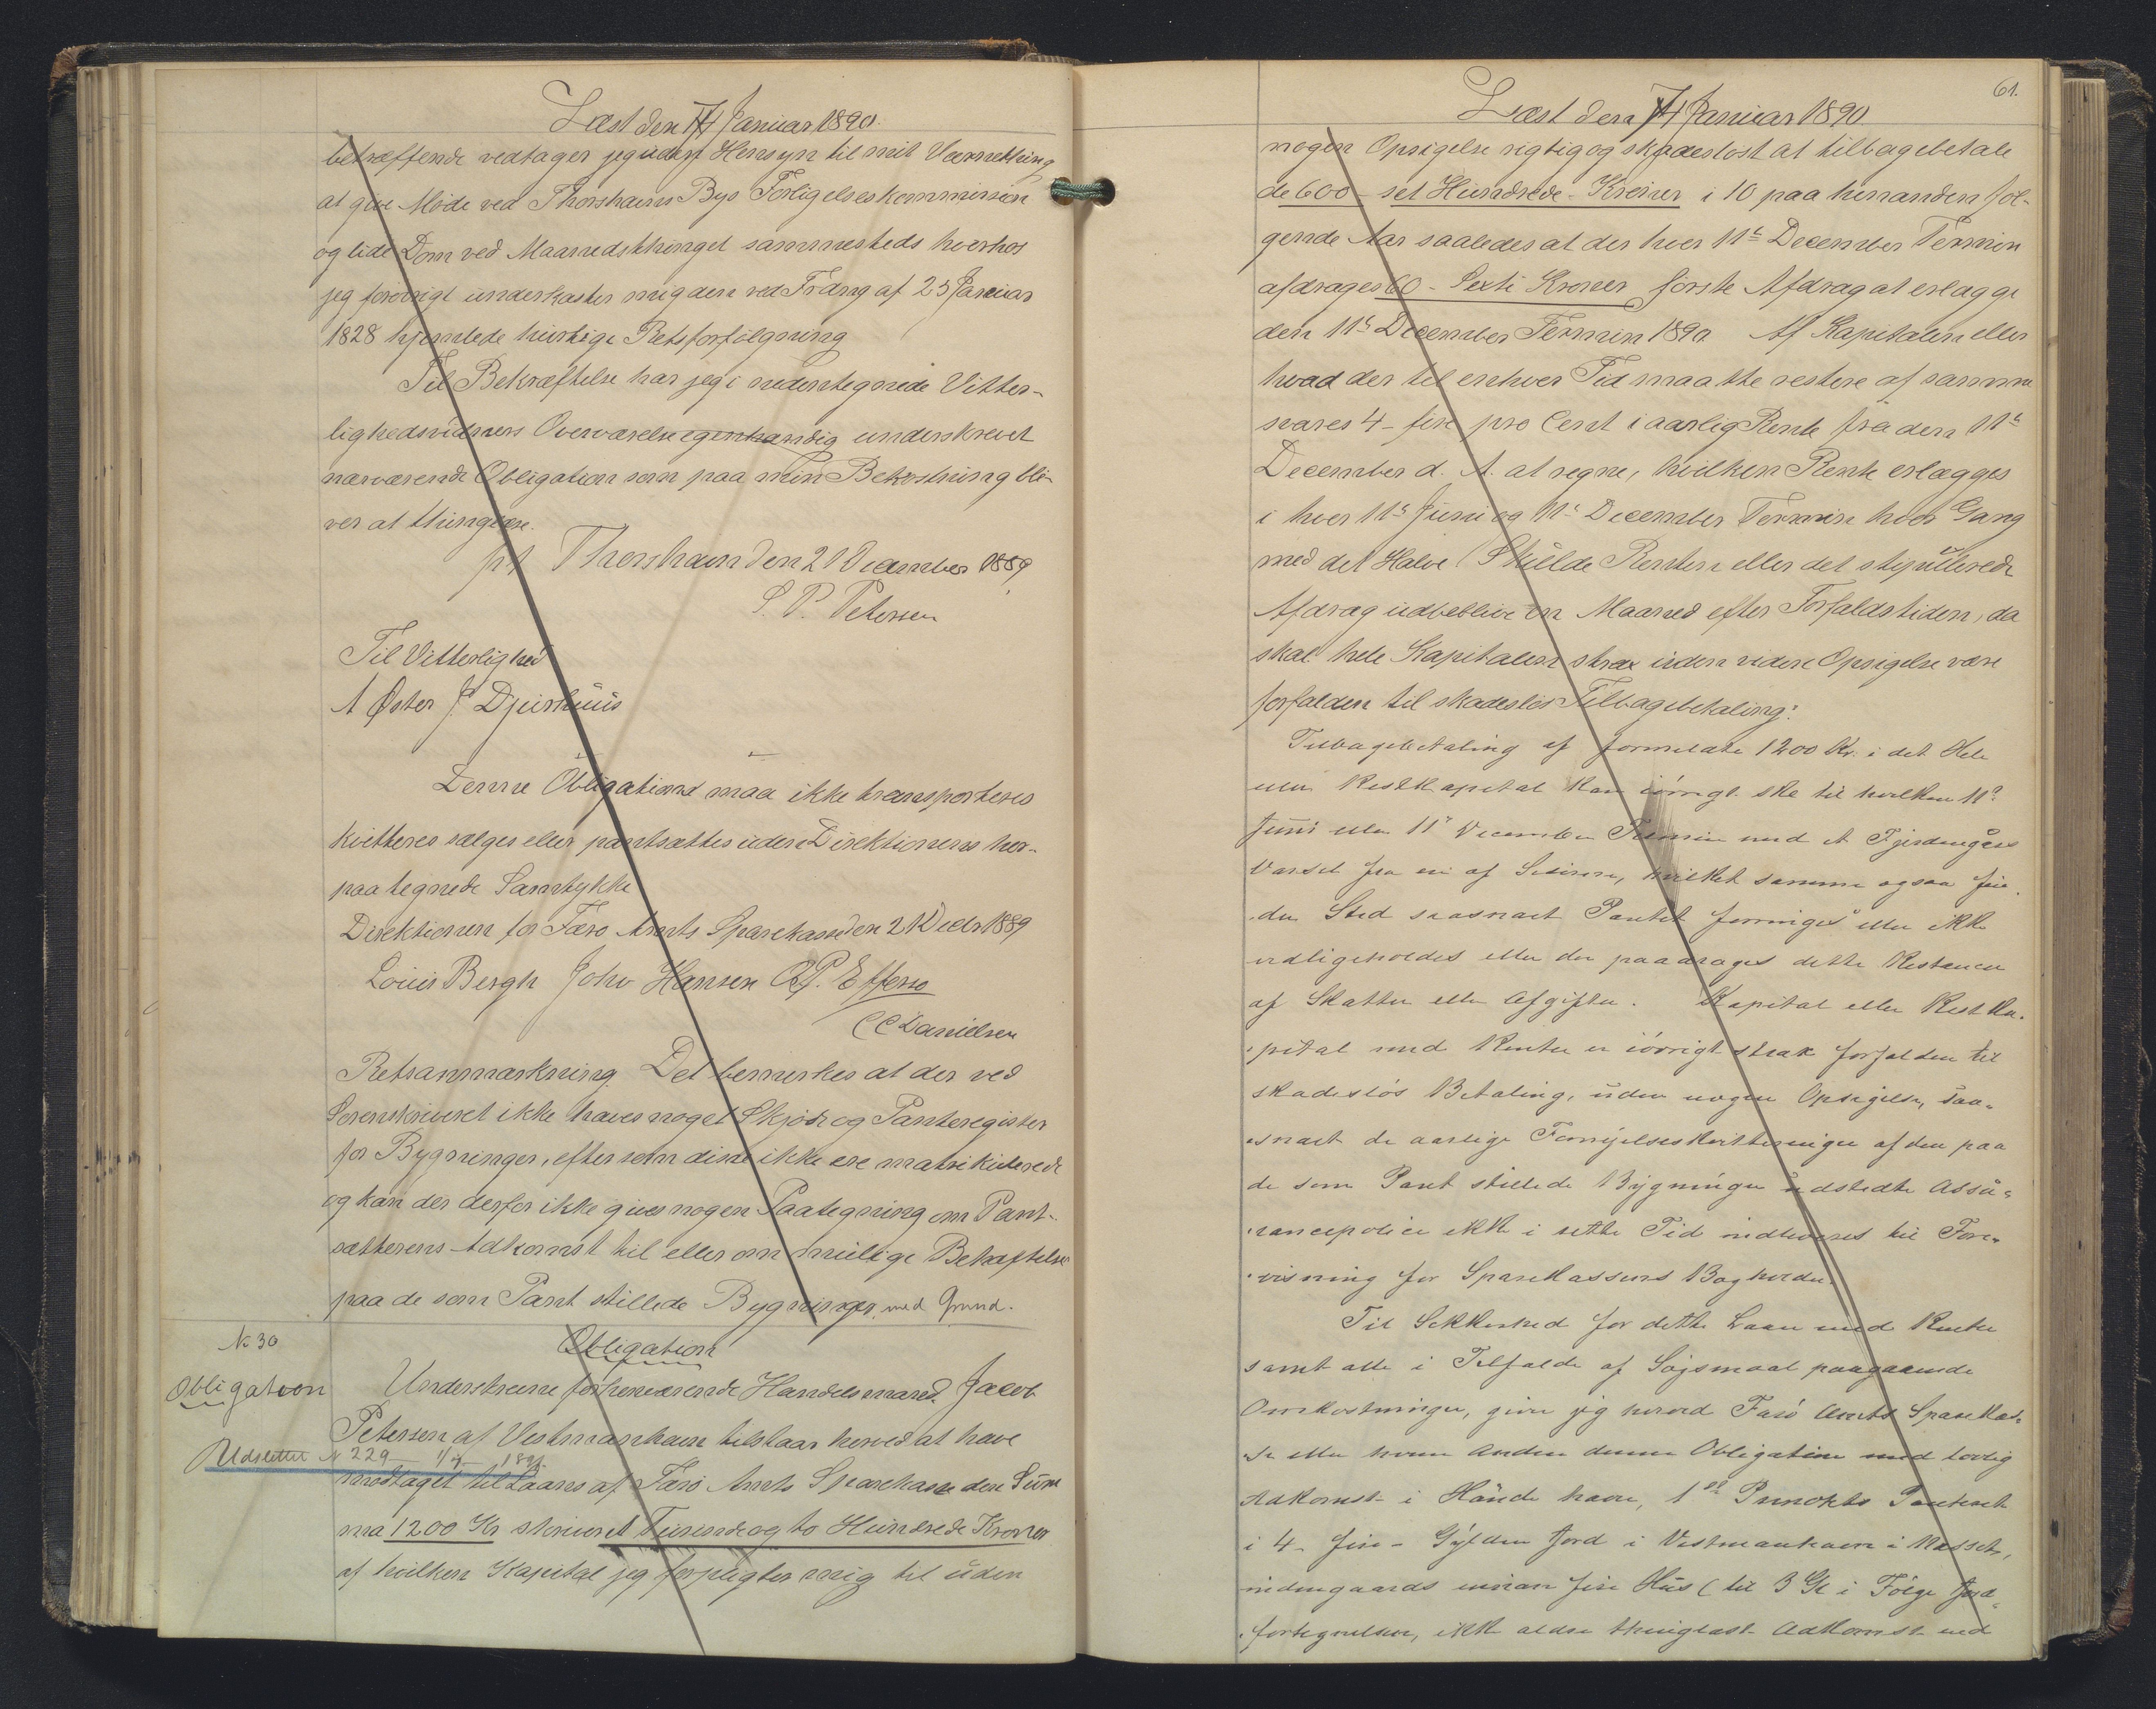 Læst den 14 Januar 1890.
betræffende vedtager jeg uden Hensyn til mit Værnething
at give Møde ved Thorshavns Bys Forligelseskommission
og lide Dom ved Maanedsthinget sammesteds hvorhos
jeg forövrigt underkaster mig den ved Frdng af 25 Januar
1828 hjemlede hurtige Retsforfölgning
Til Bekræftelse har jeg i nedentegnede Vitter-
lighedsvidners Overværelse egenhændig underskrevet
nærværende Obligation som paa min Bekostning bli-
ver at thinglæse.
pt Thorshavn den 21 December 1889
S. P. Petersen
Til Vitterlighed
A Øster J. Djurhuus
Denne Obligation maa ikke transporteres
kvitteres sælges eller pantsættes uden Direktionens her-
paa tegnede Samtykke
Direktionen for Færo Amts Sparekasse den 21 Decbr 1889
Louis Bergh John Hansen P. Effersø
C C Danielsen
Retsanmærkning Det bemerkes at der ved
Sorenskriveriet ikke haves noget Skjöde og Panteregister
for Bygninger, eftersom disse ikke ere matrikulerede
og kan der derfor ikke gives nogen Paategning om Pant-
sætterens Adkomst til eller om mulige Behæftelser
paa de som Pant stillede Bygninger med Grund.
N 30
Obligation
Obligation
Underskrevne forhenværende Handelsmand. Jacob
Petersen af Vestmanhavn tilstaar herved at have
Udslettet N 229 189
modtaget til Laans af Færö Amts Sparekasse den Sum
ma 1200 Kr skrevet Tusinde og to Hundrede Kroner
af hvilken Kapital jeg forpligter mig til uden
61.
Læst den 14 Januar 1890
nogen Opsigelse rigtig og skadeslöst at tilbagebetale
de 600 - sex Hundrede - Kroner i 10 paa hinanden föl-
gende Aar saaledes at der hver 11te December Termin
afdrages 60 - Sexti Kroner förste Afdrag at erlægge
den 11te December Termin 1890 Af Kapitalen eller
hvad der til enhver Tid maatte restere af samme
svares 4 - fire pro Cent i aarlig Rente fra den 11te
December d. A. at regne, hvilken Rente erlægges
i hver 11te Juni og 11te December Termin hver Gang
med det Halve (Skulde Renten eller det stipulerede
Afdrag udeblive en Maaned efter Forfaldstiden, da
skal hele Kapitalen strax uden videre Opsigelse være
forfalden til skadeslös Tilbagebetaling:
Tilbagebetaling af formeldte 1200 Kr. i det Hele
eller Restkapital kan iövrigt ske til hvilken 11te
Juni eller 11te December Termin med et Fjerdingårs
Varsel fra en af Siderne, hvilket samme ogsaa fin-
der Sted saasnart Pantet forringes eller ikke
vedligeholdes eller der paadrages dette Restancer
af Skatter eller Afgifter. Kapital eller Restka-
pital med Renter er iövrigt strax forfalden til
skadeslös Betaling, uden nogen Opsigelse, saa-
snart de aarlige Fornyelseskvitteringer af den paa
de som Pant stillede Bygninger udstedte Assu-
rancepolice ikke i rette Tid indleveres til Fore-
visning for Sparekassens Bogholder.
Til Sikkerhed for dette Laan med Renter
samt alle i Tilfælde af Søgsmaal paagaaende
Omkostninger, giver jeg herved Færö Amts Sparekas-
se eller hvem anden denne Obligation med lovlig
Adkomst i Hænde haver, 1ste Priorits Panteret
i 4 - fire - Gylden Jord i Vestmanhavn i
indengaards innan fire Hus (til 3 i Fölge Jord-
fortegnelsen, ikke ældre thinglæst Adkomst ved